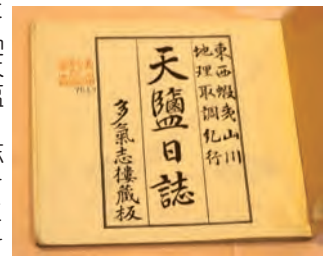 東西蝦夷山川
地理取調紀行
天鹽日誌
多氣志樓藏板